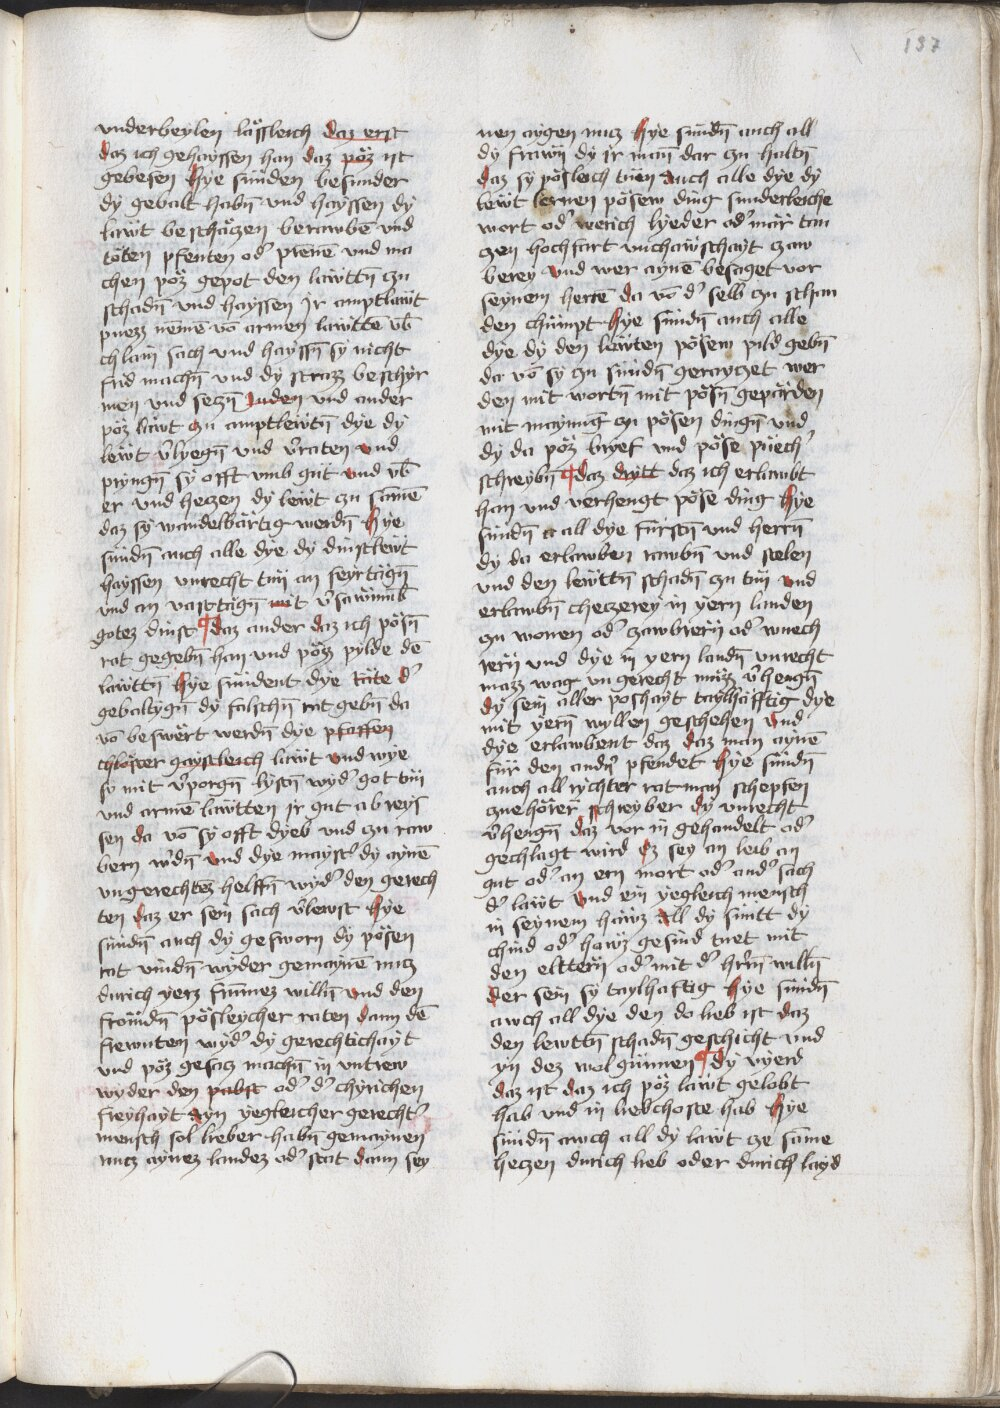 137
vnderbeylen lässleich daz erst
daz ich gehayssen han daz pöz ist
gebesen hye sünden besunder
dy gebalt habn̄ vnd hayssen dy
läwt beschäczen berawbē vnd
töten pfenten od' prēnē vnd ma
chen pöz gepot den läwttn̄ zu
schadn̄ vnd hayssen Jr amptläwt
puezz nēmē vō armen läwttē vb̄
chlain sach vnd hayssn̄ sy nicht
frid machn̄ vnd dy strazz beschir
men vnd seczn̄ Juden vnd ander
pöz läwt zu amptlewtn̄ dye dy
lewt v'lyegn̄ vnd v'raten vnd
pryngn̄ sy offt vmb gut vnd vb̄
er vnd heczen dy lewt zu samē
daz sy wandelbärtig werdn̄ hye
sündn̄ auch alle dye dy dinstlewt
hayssen vnrecht tün an feyrtägn̄
vnd an vasttägn̄ mit v'sawmūb
gotez dinst ¶ daz ander daz ich pösn̄
rat gegebn̄ han vnd pöz pylde dē
läwttn̄ hye sündent dye räte d'
gebaltygn̄ dy falschn̄ rat gebn̄ da
vō beswërt werdn̄ dye pfaffen
chlöster gaystleich läwt vnd wye
sy mit v'porgn̄ lystn̄ wyd' got tün
vnd armē läwtten ir gut ab reys
sen da vō sy offt dyeb vnd zu raw
bern w'dn̄ vnd dye mayst' dy aynē
vngerechtez helffn̄ wyd' den gerech
ten daz er sein sach v'lewst hye
sündn̄ auch dy gesworn dy pösen
rat vindn̄ wyder gemaynē nucz
durich yerz frūmez willn̄ vnd den
fromdn̄ pösleycher raten dann dē
frewnten wyd' dy gerechtichayt
vnd pöz gesacz machn̄ in vntrew
wyder den pabst od' d' chyrichen
freyhayt Ayn yegleicher gerecht'
mensch sol lieber habn̄ gemaynen
nucz aynez landez od' stat dann sey
nen aygen nucz hye sündn̄ auch all
dy frawn̄ dy ir man̄ dar zu haltn̄
daz sy pösleich tuen Auch alle dye dy
lewt lernen pösew ding sunderleiche
wort od' werich lyeder od' mär tan
czen hochfart vnchawschayt zaw
berey vnd wer aynē besaget vor
seynem herrē da vō d' selb zu schan
den chümpt hye sündn̄ auch alle
dye dy den läwten pösew pild gebn̄
da vō sy zu sündn̄ geraytzet wer
den mit wortn̄ mit pösn̄ gepärden
mit maynūg zu pösen dingn̄ vnd
dy da pöz bryef vnd pöse püech'
schreybn̄ ¶ daz drytt daz ich erlawbt
han vnd verhengt pöse ding hye
sündn̄ all dye fürstn̄ vnd herrn̄
dy da erlawben rawbn̄ vnd stelen
vnd den lewttn̄ schadn̄ zu tün vnd
erlawbn̄ checzerey in yern landen
zu wonen od' zawbrerey od' wuech
rery vnd dye in yern landn̄ vnrecht
mazz wag vngerecht münz v'hengn̄
dy sein aller poshayt taylhafftig dye
mit yern̄ wyllen geschehen vnd
dye erlawbent daz daz man aynē
für den andn̄ pfendet hye sündn̄
auch all rychter ratman schepfen
zuehörer schreyber dy vnrecht
v'hengn̄ daz vor in gehandelt od'
gechlagt wird ez sey an leib an
gut od' an ern mort od' and' sach
d' läwt vnd ein yegleich mensch
in seynem hawz all dy sunt dy
chind od' hawz gesind tuet mit
den elttern̄ od' mit d' hr̄n̄ willn̄
der sein sy taylhaftig hye sündn̄
awch all dye den do lieb ist daz
den lewttn̄ schadn̄ geschicht vnd
yn dez wol günnen ¶ dy vyerd
daz ist daz ich pöz läwt gelobt
hab vnd in liebchoste hab hye
sündn̄ awch all dy läwt ze samē
heczen durich lieb oder durich layd